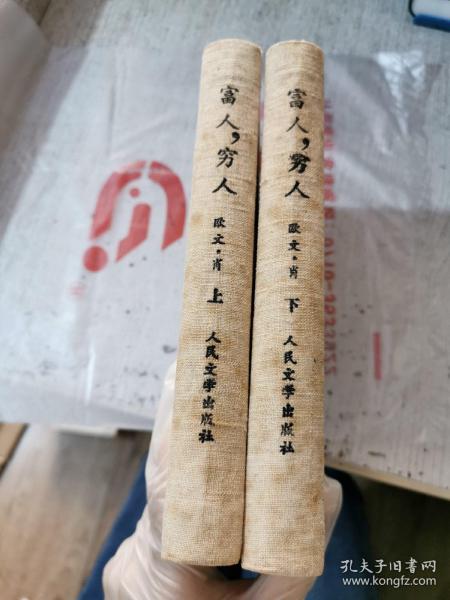 富人，穷人
欧文·肖
上
人民文学出版社
富人，穷人
欧文·肖
下
人民文学出版社
孔夫子旧书网
www.kongfz.com